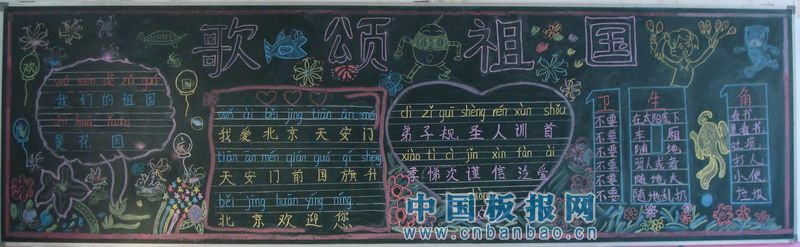 歌颂祖国
欢
wǒ men de zǔ guó
我们的祖国
是花园
wǒ ài běi jīng tiān ān mén
我爱北京天安门
tiān ān mén qián guó qí shēng
天安门前国旗升
běi jīng huān yíng nín
北京欢迎您
dì zǐ guī shèng rén xùn shǒu
弟子规圣人训首
xiào tì cì jǐn xìn fàn ài
孝悌次谨信泛爱
卫生角
不要在太阳底下看书
不要车厢里看书
不要随地吐痰
不要打人
不要随地大小便
不要随地乱扔垃圾
中国板报网
www.cnbanbao.cn